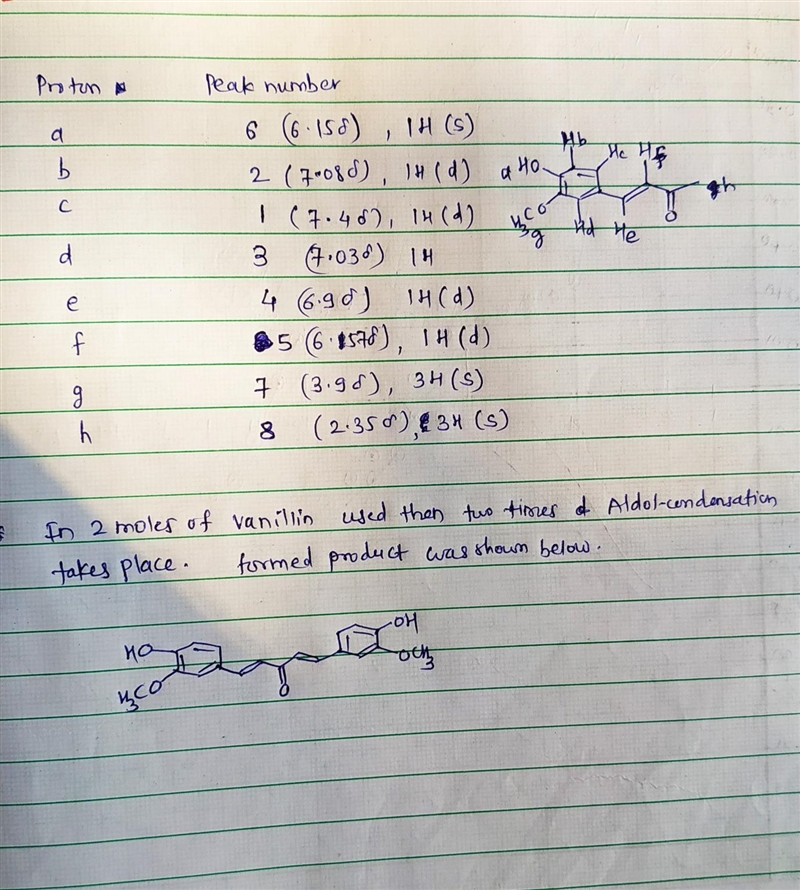 Proton Peak number
a 6 (6.15δ), 1H (s)
b 2 (7.08δ), 1H (d)
c 1 (7.4δ), 1H (d)
d 3 (7.03δ) 1H
e 4 (6.9δ) 1H (d)
f 5 (6.57δ), 1H (d)
g 7 (3.9δ), 3H (s)
h 8 (2.35δ), 3H (s)
Hb
Hc Hf
a HO
h
H3CO
g
Hd He
O
In 2 moles of vanillin used then two times Aldol-condensation
takes place. formed product was shown below.
OH
HO
OCH3
H3CO
O